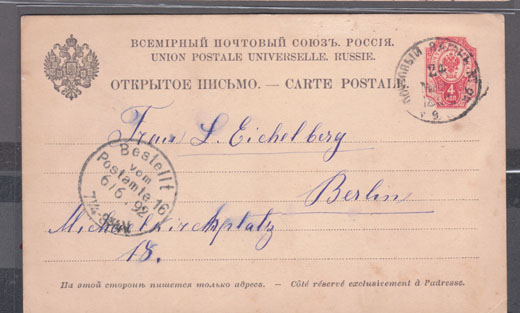 ВСЕМІРНЫЙ ПОЧТОВЫЙ СОЮЗЪ. РОССІЯ.
UNION POSTALE UNIVERSELLE. RUSSIE.
ОТКРЫТОЕ ПИСЬМО. — CARTE POSTALE.
ПОЧТОВЫЙ ВАГОНЪ
4
Frau L. Eichelberg
Bestellt
vom
Postamte 16
6/6 92
7¼-
Berlin
Michaelkirchplatz
18.
На этой сторонѣ пишется только адресъ. — Côté réservé exclusivement à l'adresse.